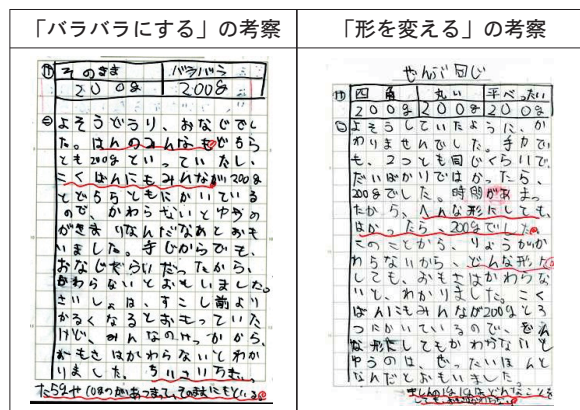 「バラバラにする」の考察
「形を変える」の考察
そのまま
バラバラ
200g
200g
よそうどうり、おなじでし
た。はんのみんなもどちら
とも200gといっていたし、
こくばんにもみんなが200g
とどちらともにかいている
ので、かわらないとゆうの
がきまりなんだなあとおも
いました。手じからでも、
おなじだらいだったから、
かわらないとおもいました。
さいしょは、すこし前より
かるくなるとおもっていた
けど、みんなのけっかから、
おもさはかわらないとわか
りました。ちいさいつぶ
ぜんぶ同じ
四角
丸い
平べったい
200g
200g
200g
よそうしていたように、か
わりませんでした。手ゎかで
も、2つとも同じくらいで、
だいばかりではかったら、
200gでした。時間があまっ
たから、へんな形にしても、
はかったら、200gでした。
このことから、りょうがか
わらないから、どんな形に
しても、おもさはかわらな
いと、わかりました。こく
ばんにもみんなが200gとろ
つにかいているので、どん
な形にしてもかわらないと
ゆうのは、ぜったいほんと
なんだとおもいました。